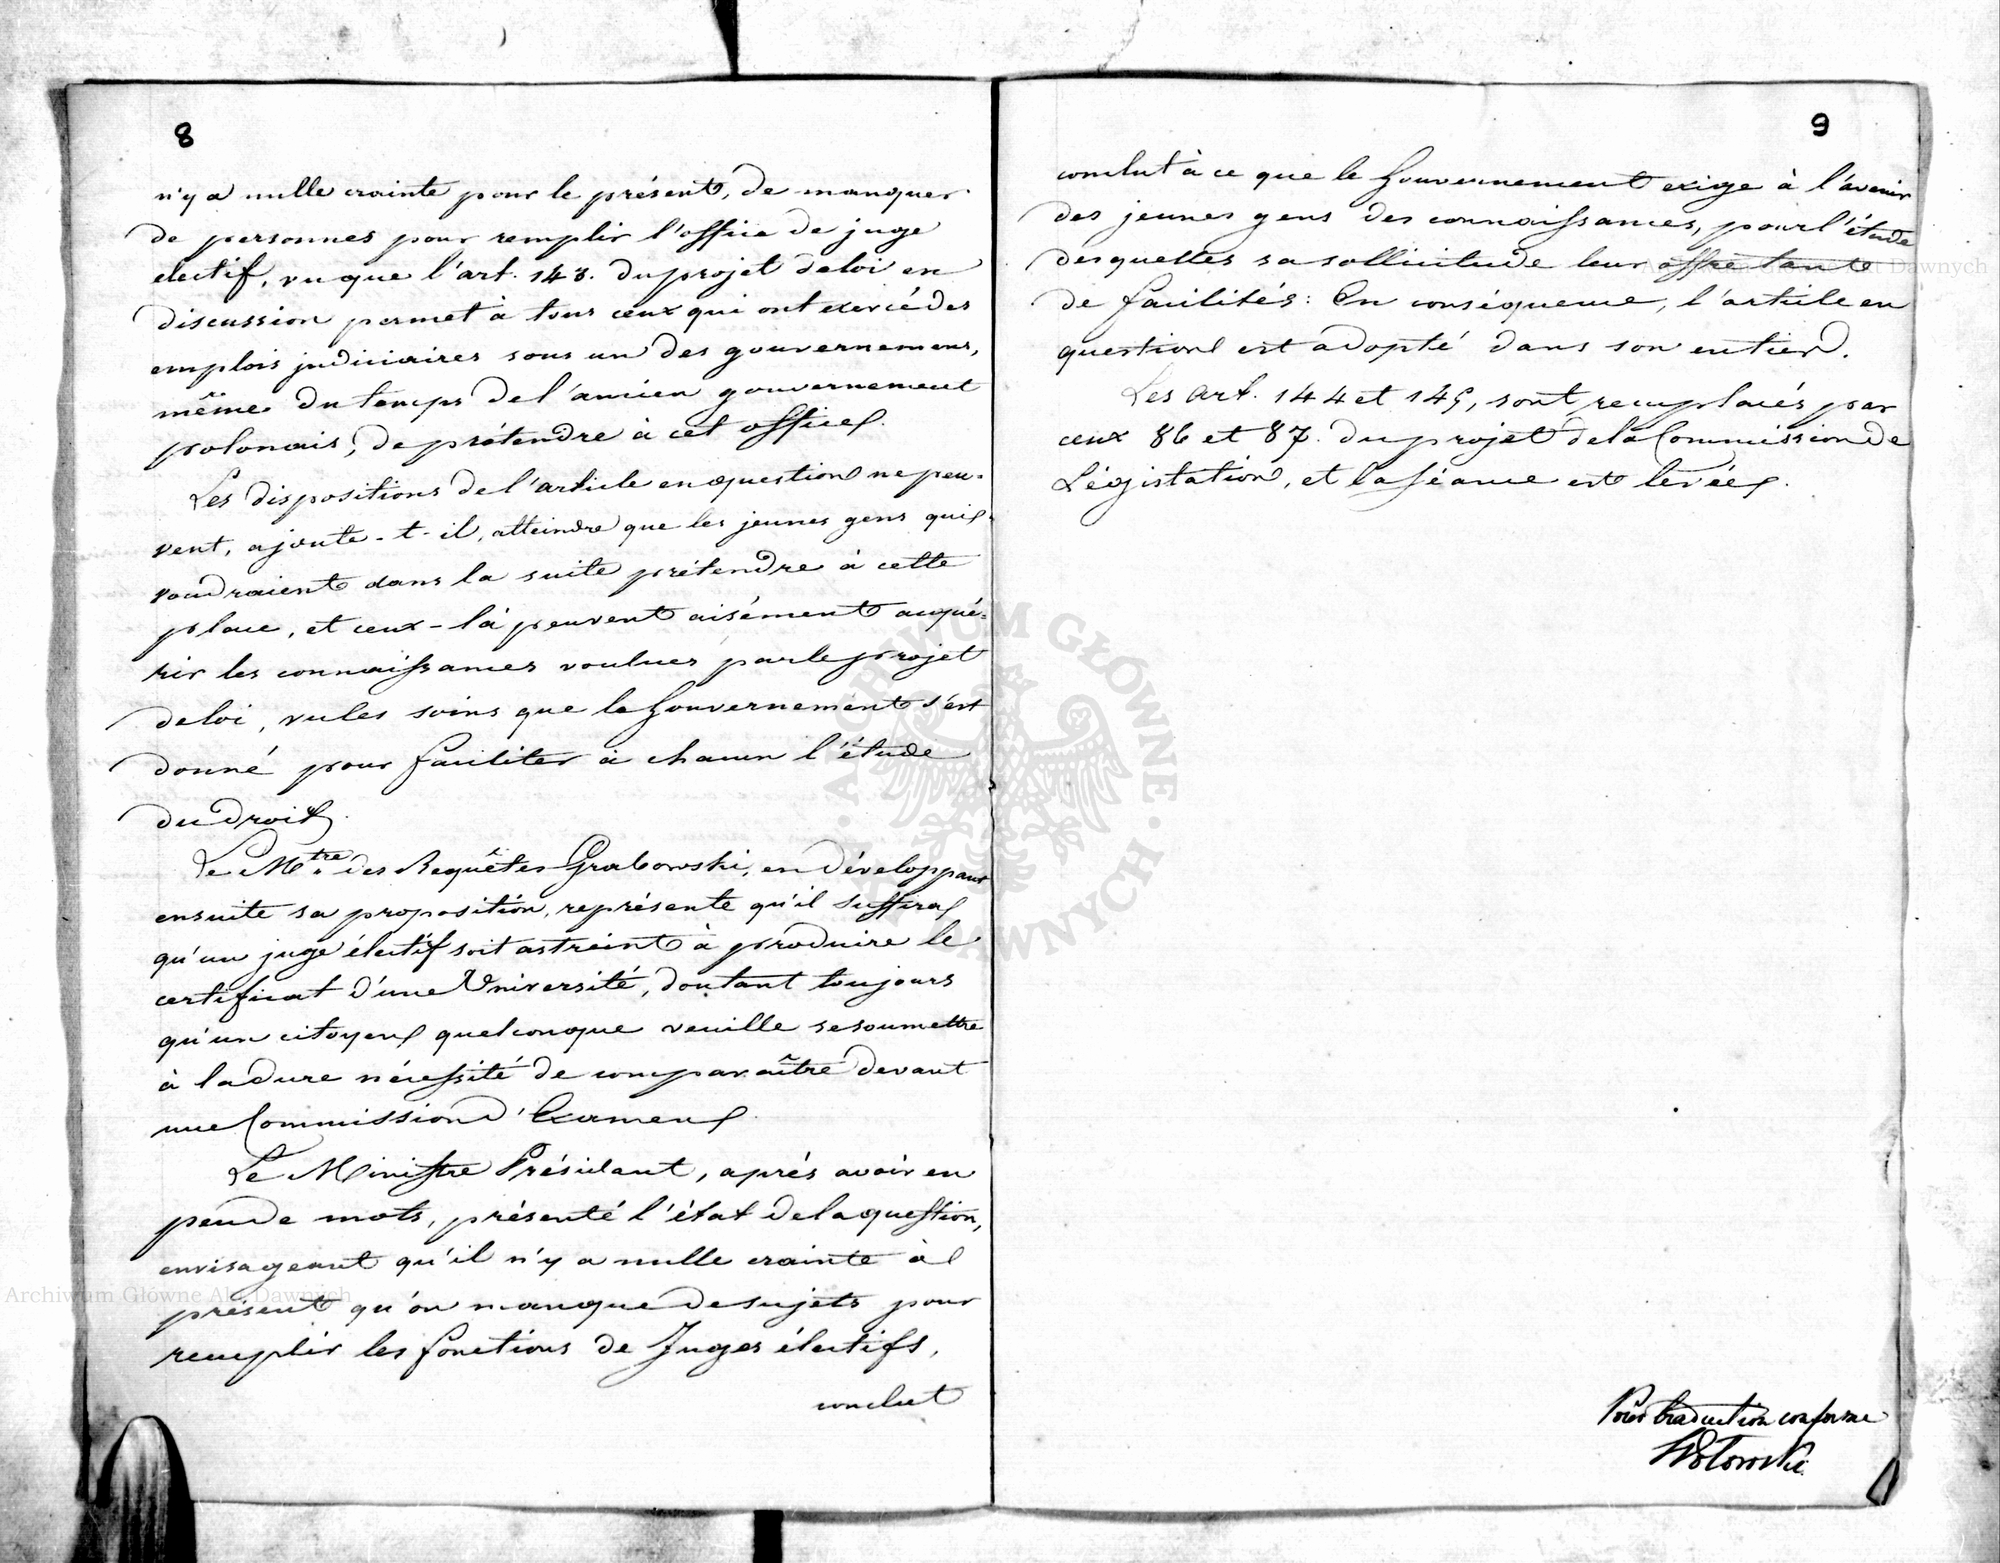 8
n'y a nulle crainte pour le présent, de manquer
de personnes pour remplir l'office de juge
électif, vu que l'art. 143. du projet de loi en
discussion permet à tous ceux qui ont exercé des
emplois judiciaires sous un des gouvernemens,
même du temps de l'ancien gouvernement
polonais, de prétendre à cet office.
Les dispositions de l'article en question ne peu-
vent, ajoute-t-il, atteindre que les jeunes gens qui
voudraient dans la suite prétendre à cette
place, et ceux-là peuvent aisément acqué-
rir les connaissances voulues par le projet
de loi, vu les soins que le Gouvernement s'est
donné pour faciliter à chacun l'étude
du droit.
Le Mtre des Requêtes Grabowski, en développant
ensuite sa proposition, représente qu'il suffira
qu'un juge électif soit astreint à produire le
certificat d'une Université, doutant toujours
qu'un citoyen quelconque veuille se soumettre
à la dure nécessité de comparaître devant
une Commission d'Examen.
Le Ministre Présidant, après avoir en
peu de mots, présenté l'état de la question,
envisageant qu'il n'y a nulle crainte à
présent qu'on manque de sujets pour
remplir les fonctions de Juges électifs,
conclut
9
conclut à ce que le Gouvernement exige à l'avenir
des jeunes gens des connaissances, pour l'étude
desquelles sa sollicitude leur offre tant
de facilités: En conséquence, l'article en
question est adopté dans son entier.
Les Art. 144 et 145, sont remplacés par
ceux 86 et 87. du projet de la Commission de
Législation, et la séance est levée.
Pour traduction conforme
Wołowski
Archiwum Główne Akt Dawnych
Archiwum Główne Akt Dawnych
ARCHIWUM GŁÓWNE AKT DAWNYCH